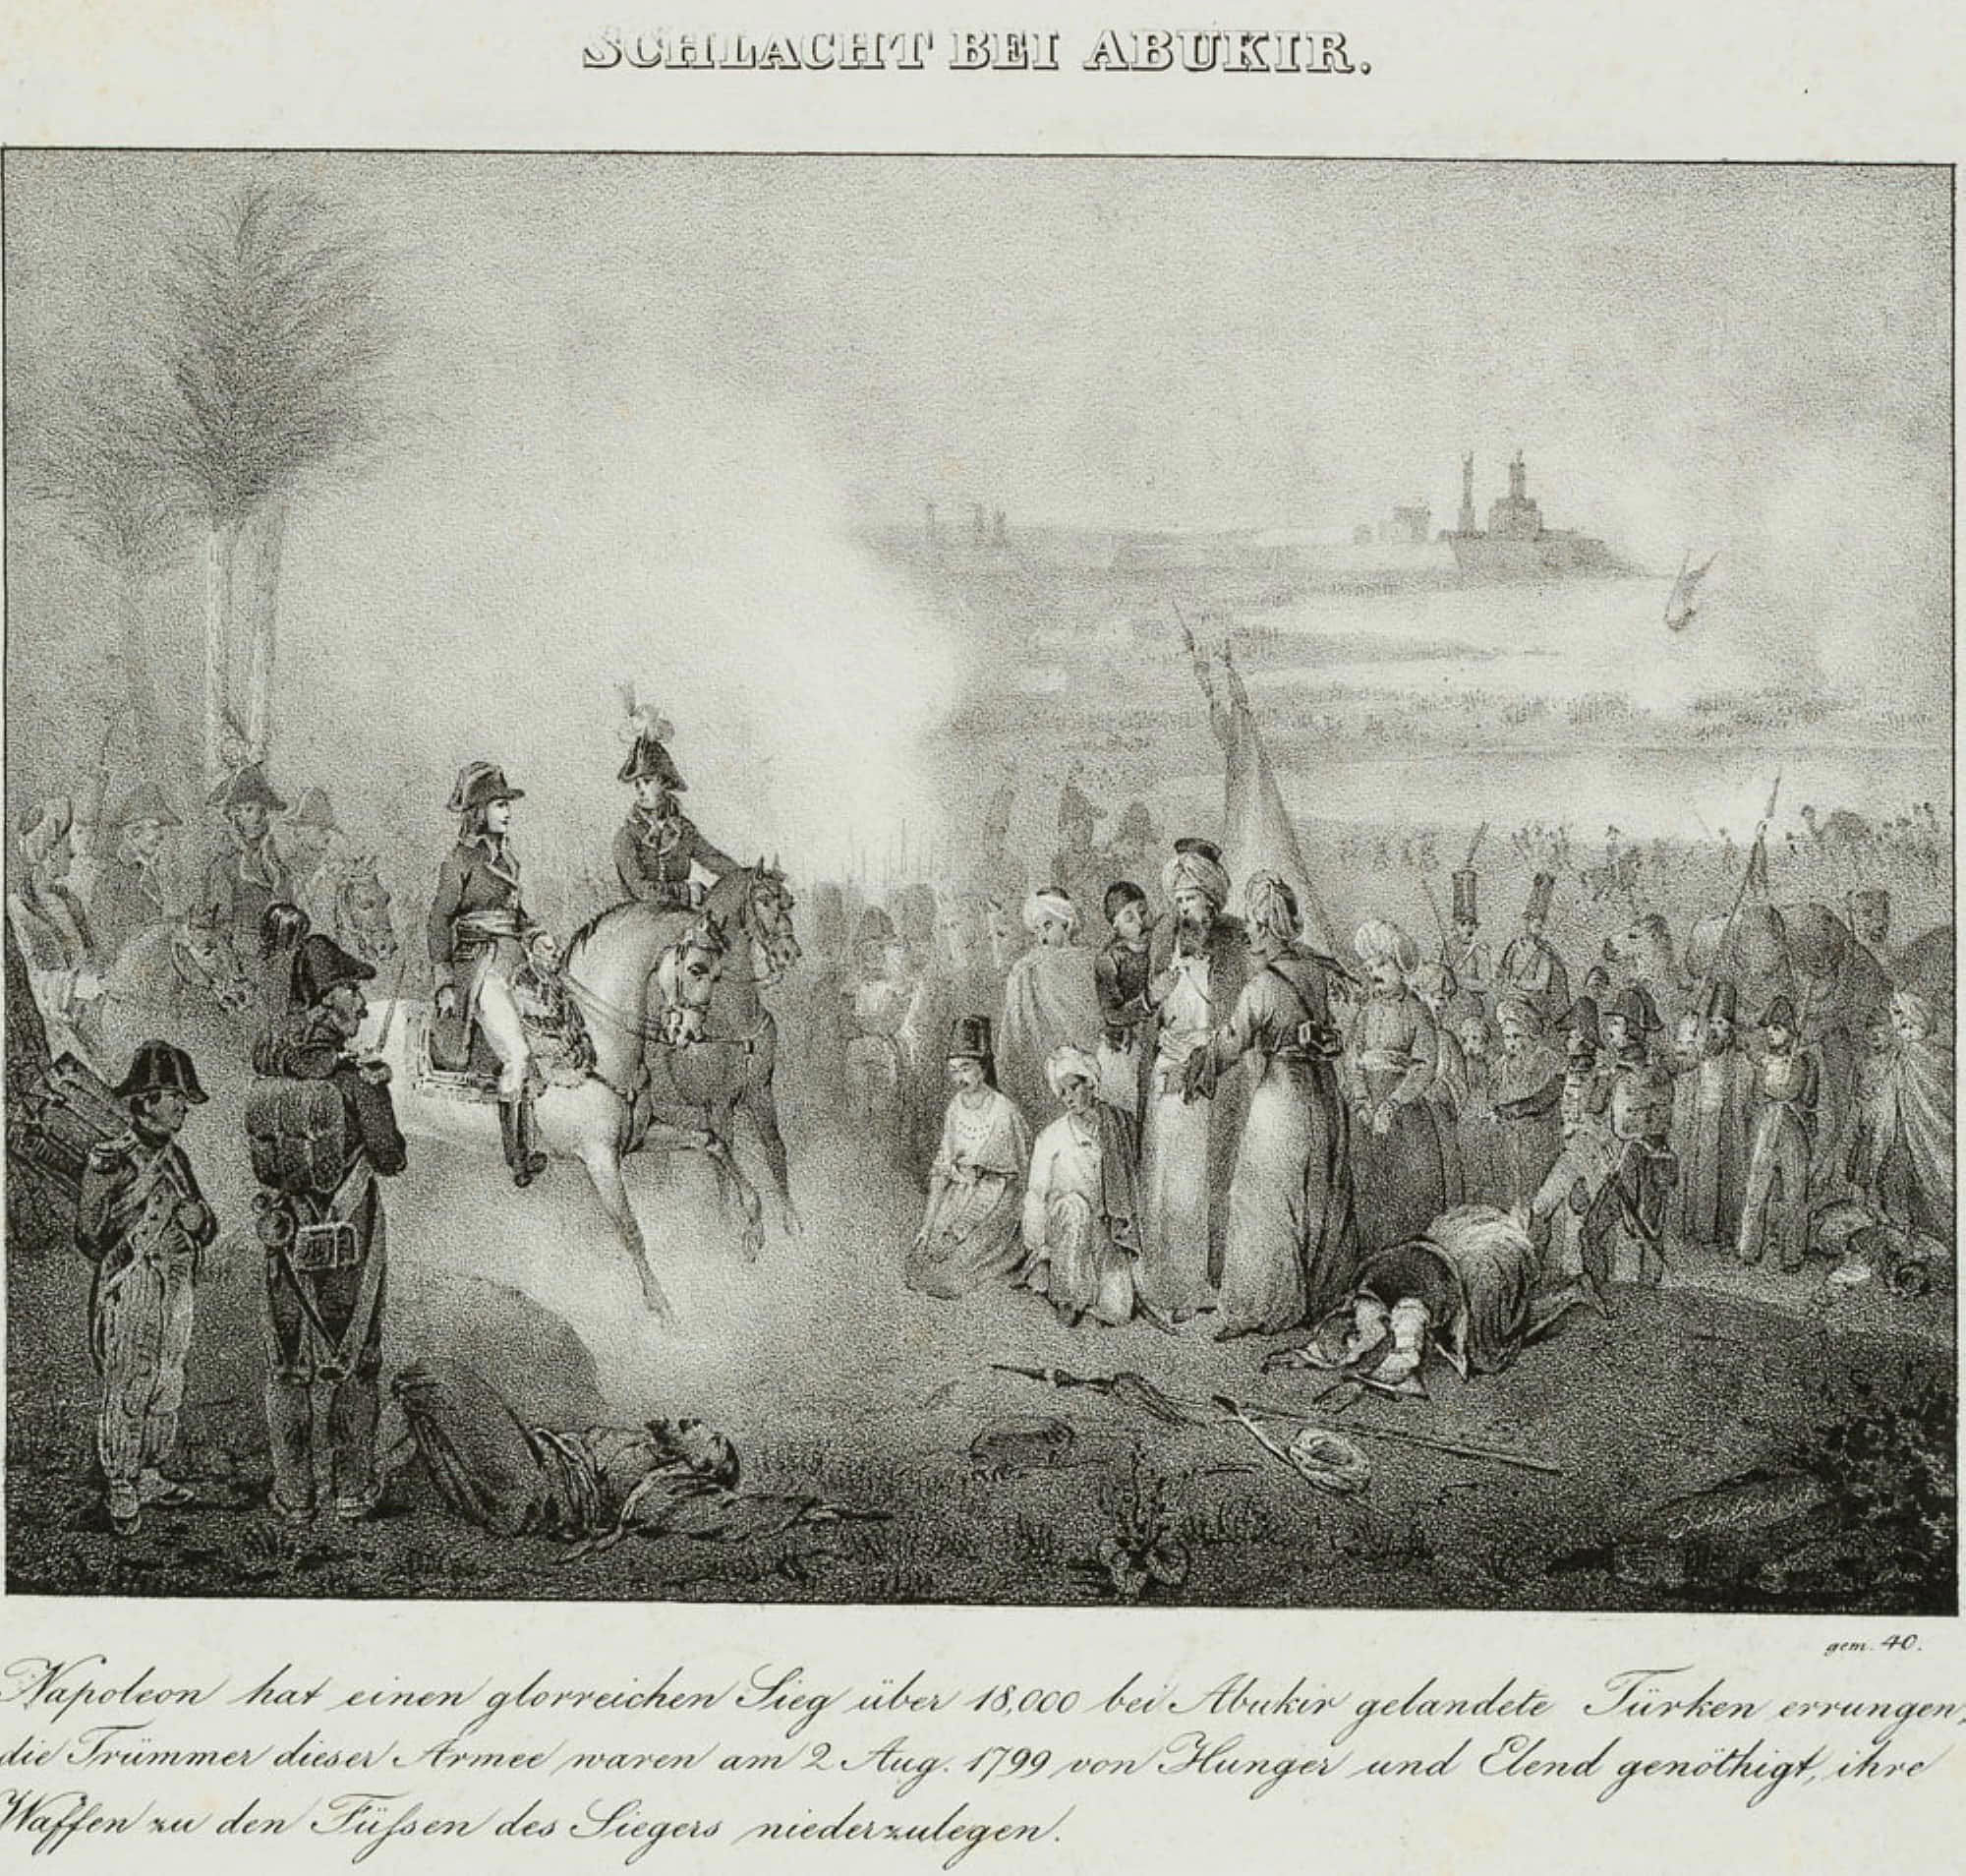 SCHLACHT BEI ABUKIR.
gem. 40.
Napoleon hat einen glorreichen Sieg über 18,000 bei Abukir gelandete Türken errungen,
die Trümmer dieser Armee waren am 2 Aug. 1799 von Hunger und Elend genöthigt, ihre
Waffen zu den Füſsen des Siegers niederzulegen.